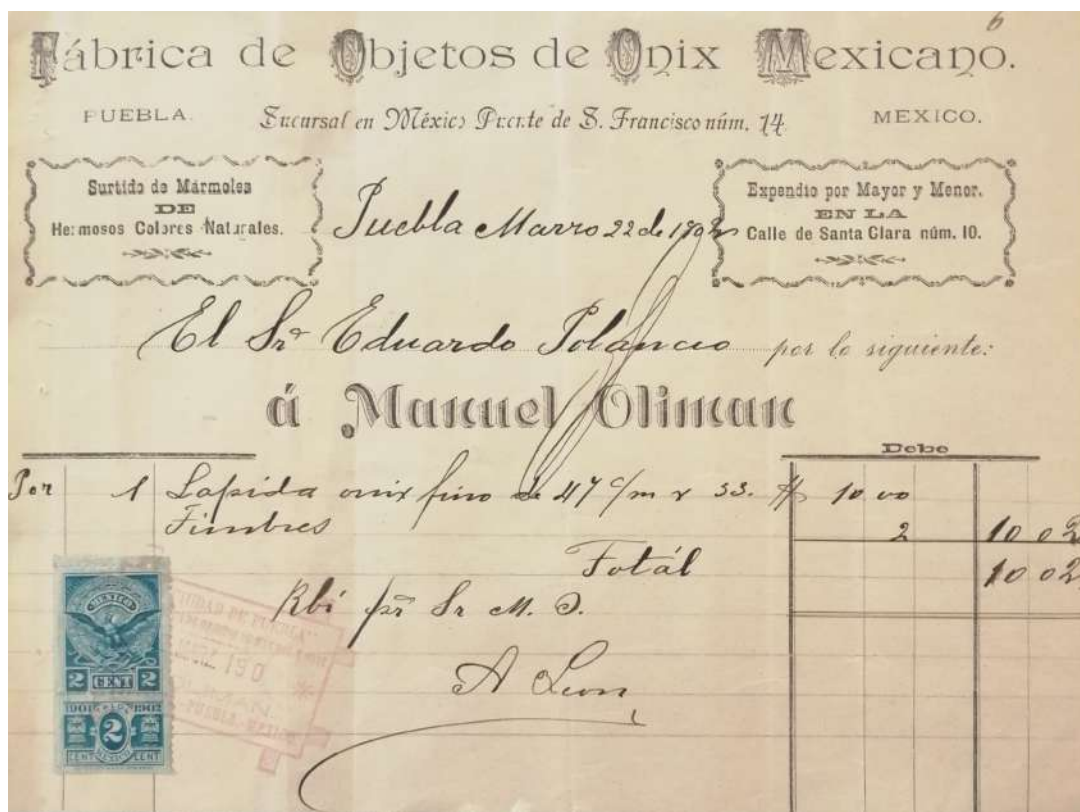 6
Fábrica de Objetos de Onix Mexicano.
PUEBLA. Sucursal en México Puente de S. Francisco núm. 14 MEXICO.
Surtido de Mármoles
DE
Hermosos Colores Naturales.
Puebla Marzo 22 de 1902
Expendio por Mayor y Menor.
EN LA
Calle de Santa Clara núm. 10.
El Sr Eduardo Polanco por lo siguiente:
á Manuel Oliman
Debe
Por 1 Lapida onix fino de 47 c/m x 33. $ 10 00
Timbres 2 10 02
Total 10 02
Rbí pr Sr M. O.
A Leon
MEXICO
2 CENT 2
1901 1902
2
CENT MEXICO CENT
CIUDAD DE PUEBLA
190
PUEBLA